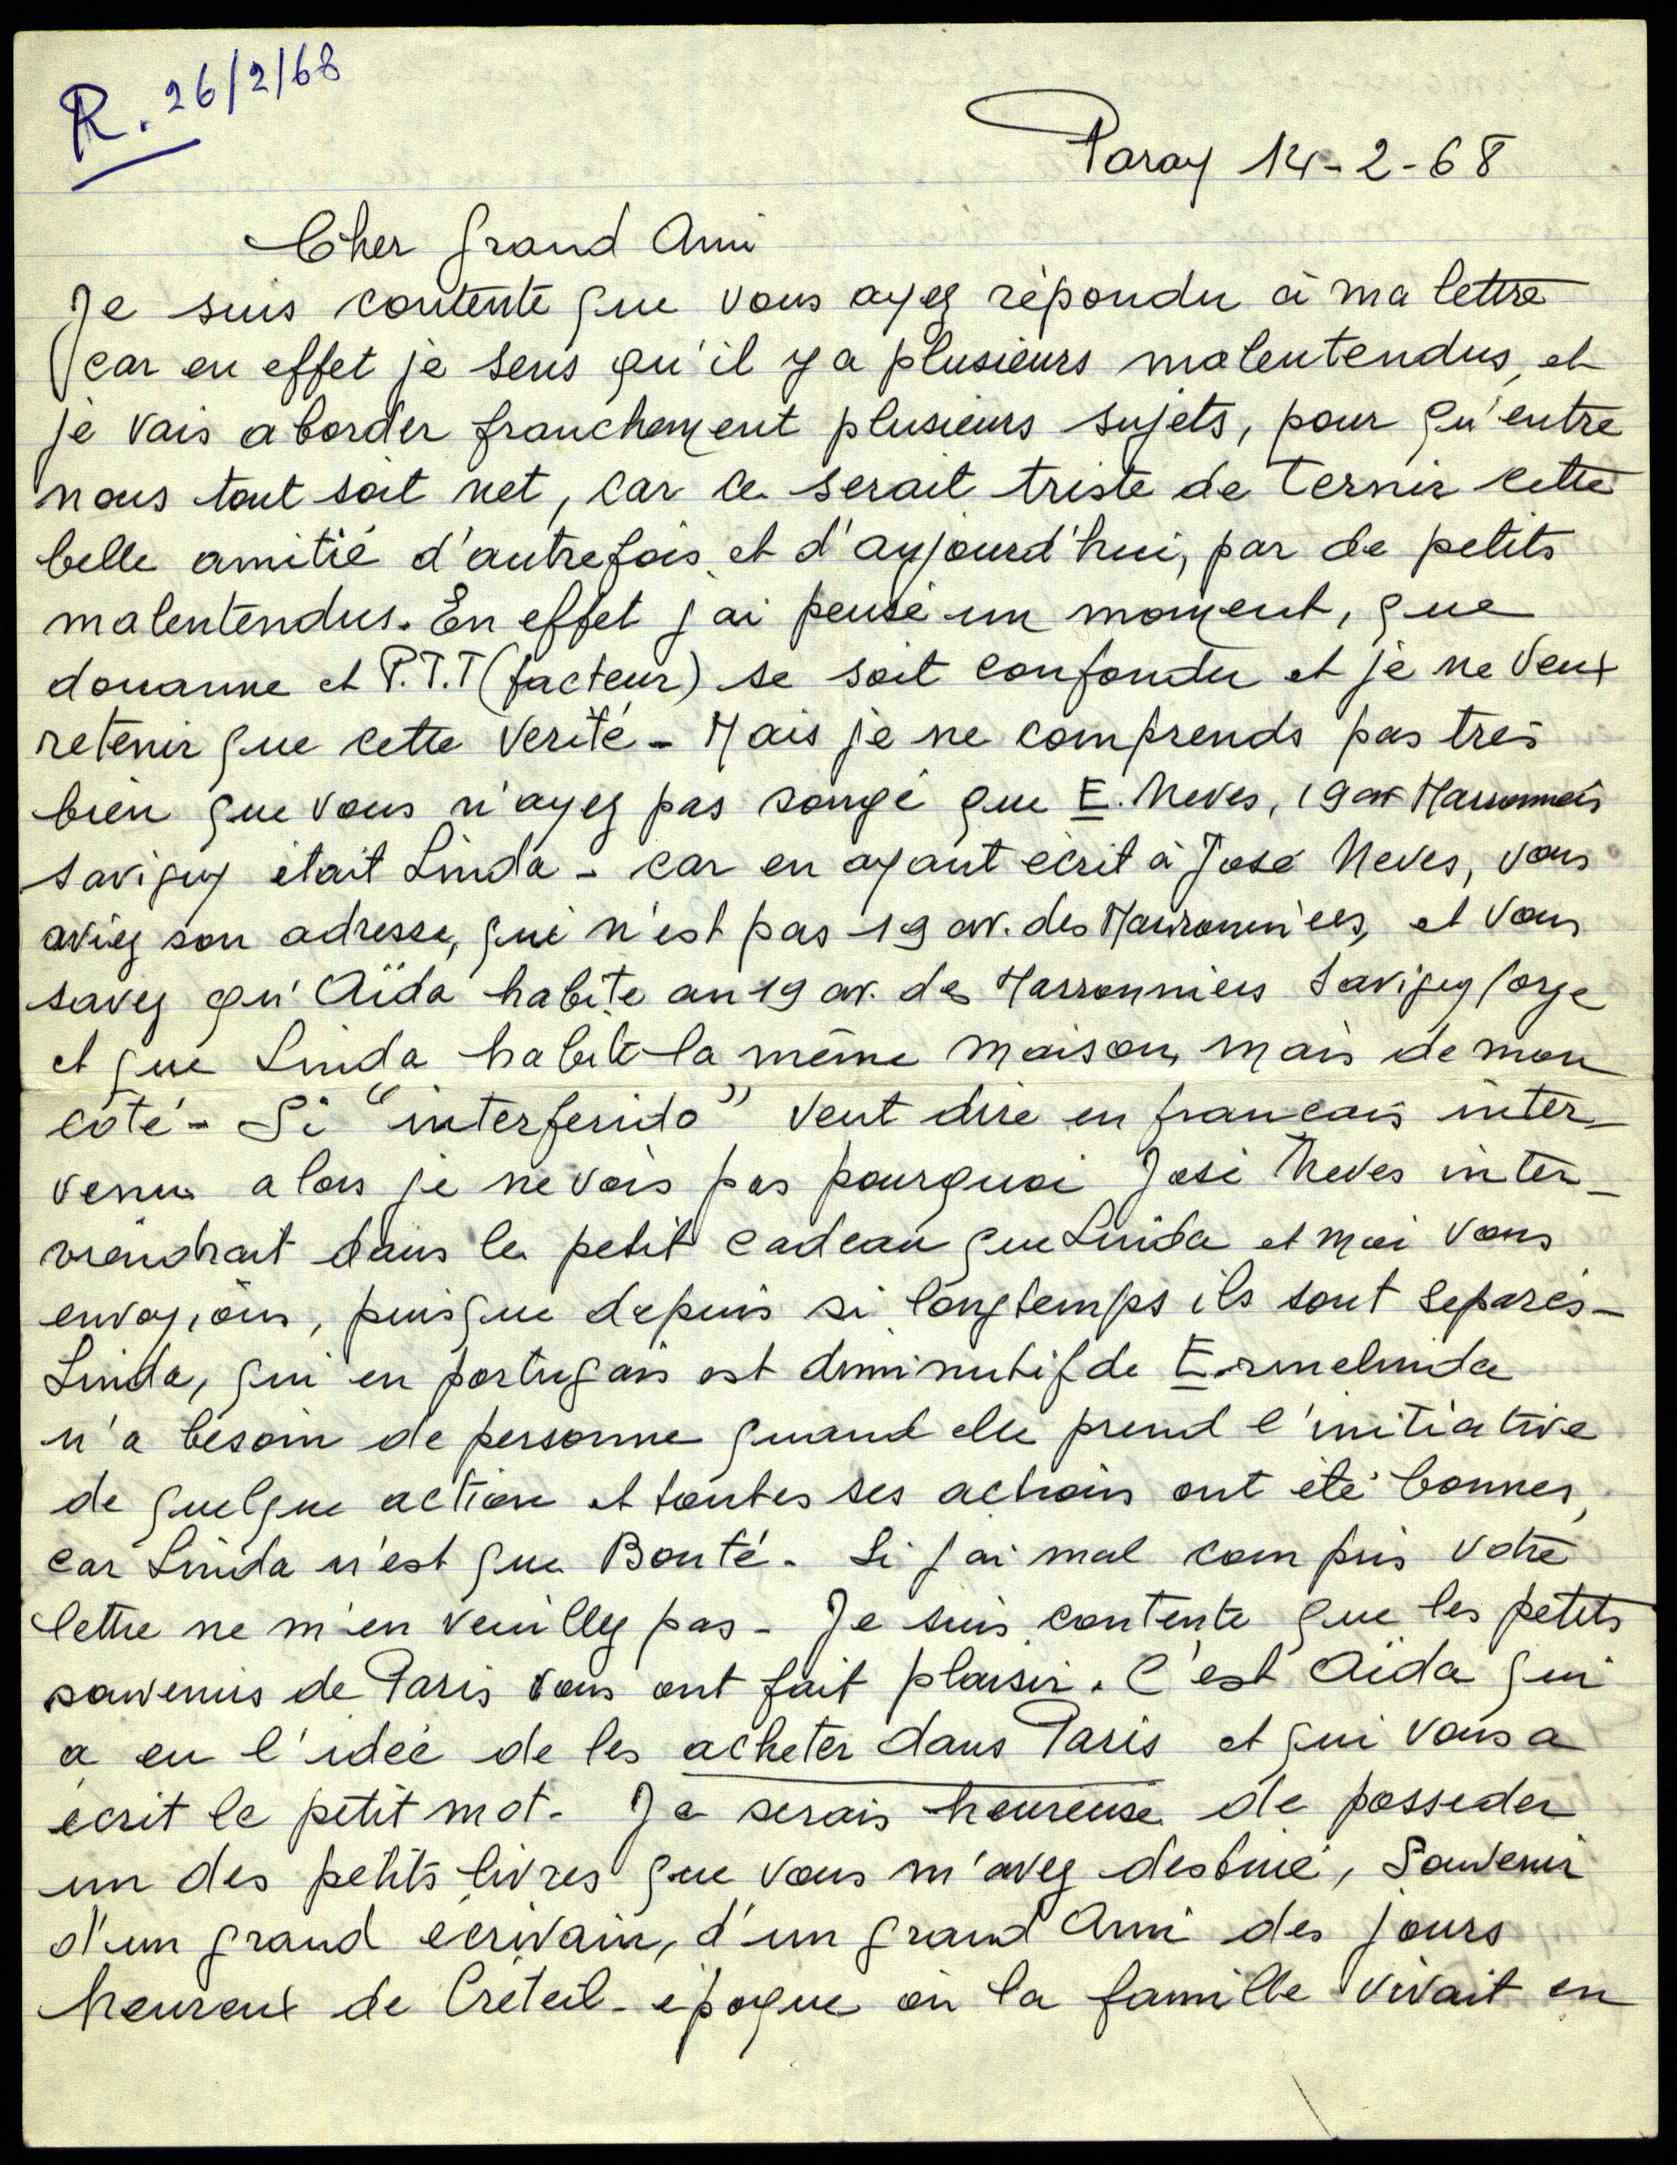 R. 26/2/68
Paray 14-2-68
Cher grand Ami
Je suis contente que vous ayez répondu à ma lettre
car en effet je sens qu'il y a plusieurs malentendus, et
je vais aborder franchement plusieurs sujets, pour qu'entre
nous tout soit net, car ce serait triste de ternir cette
belle amitié d'autrefois et d'aujourd'hui, par de petits
malentendus. En effet j'ai pensé un moment, que
douanne et P.T.T (facteur) se soit confondu et je ne veux
retenir que cette verité - Mais je ne comprends pas très
bien que vous n'ayez pas songé que E. Neves, 19 av Marronniers
Savigny était Linda - car en ayant écrit à José Neves, vous
aviez son adresse, qui n'est pas 19 av. des Marronniers, et vous
savez qu'Aïda habite au 19 av. des Marronniers Savigny/orge
et que Linda habite la même maison, mais de mon
côté - Si "interferido" veut dire en francais inter-
venu alors je ne vois pas pourquoi José Neves inter-
viendrait dans le petit cadeau que Linda et moi vous
envoyions, puisque depuis si longtemps ils sont separés -
Linda, qui en portugais est diminutif de Ermelinda
n'a besoin de personne quand elle prend l'initiative
de quelque action et toutes ses actions ont été bonnes,
car Linda n'est que Bonté. Si j'ai mal compris votre
lettre ne m'en veuillez pas - Je suis contente que les petits
souvenirs de Paris vous ont fait plaisir. C'est Aïda qui
a eu l'idée de les acheter dans Paris et qui vous a
écrit le petit mot. Je serais heureuse de posseder
un des petits livres que vous m'avez destiné, Souvenir
d'un grand écrivain, d'un grand Ami des jours
heureux de Créteil - époque où la famille vivait en